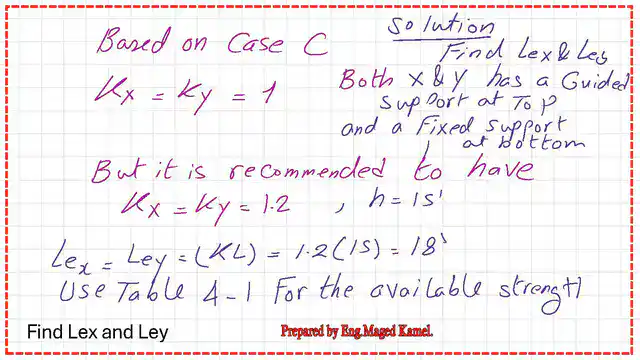 Solution
Find Lex & Ley
Based on Case C
Kx = Ky = 1
Both x & y has a Guided
support at Top
and a Fixed support
at bottom
But it is recommended to have
Kx = Ky = 1.2 , h = 15'
Lex = Ley = (KL) = 1.2(15) = 18'
Use Table 4-1 For the available strength
Find Lex and Ley
Prepared by Eng.Maged Kamel.